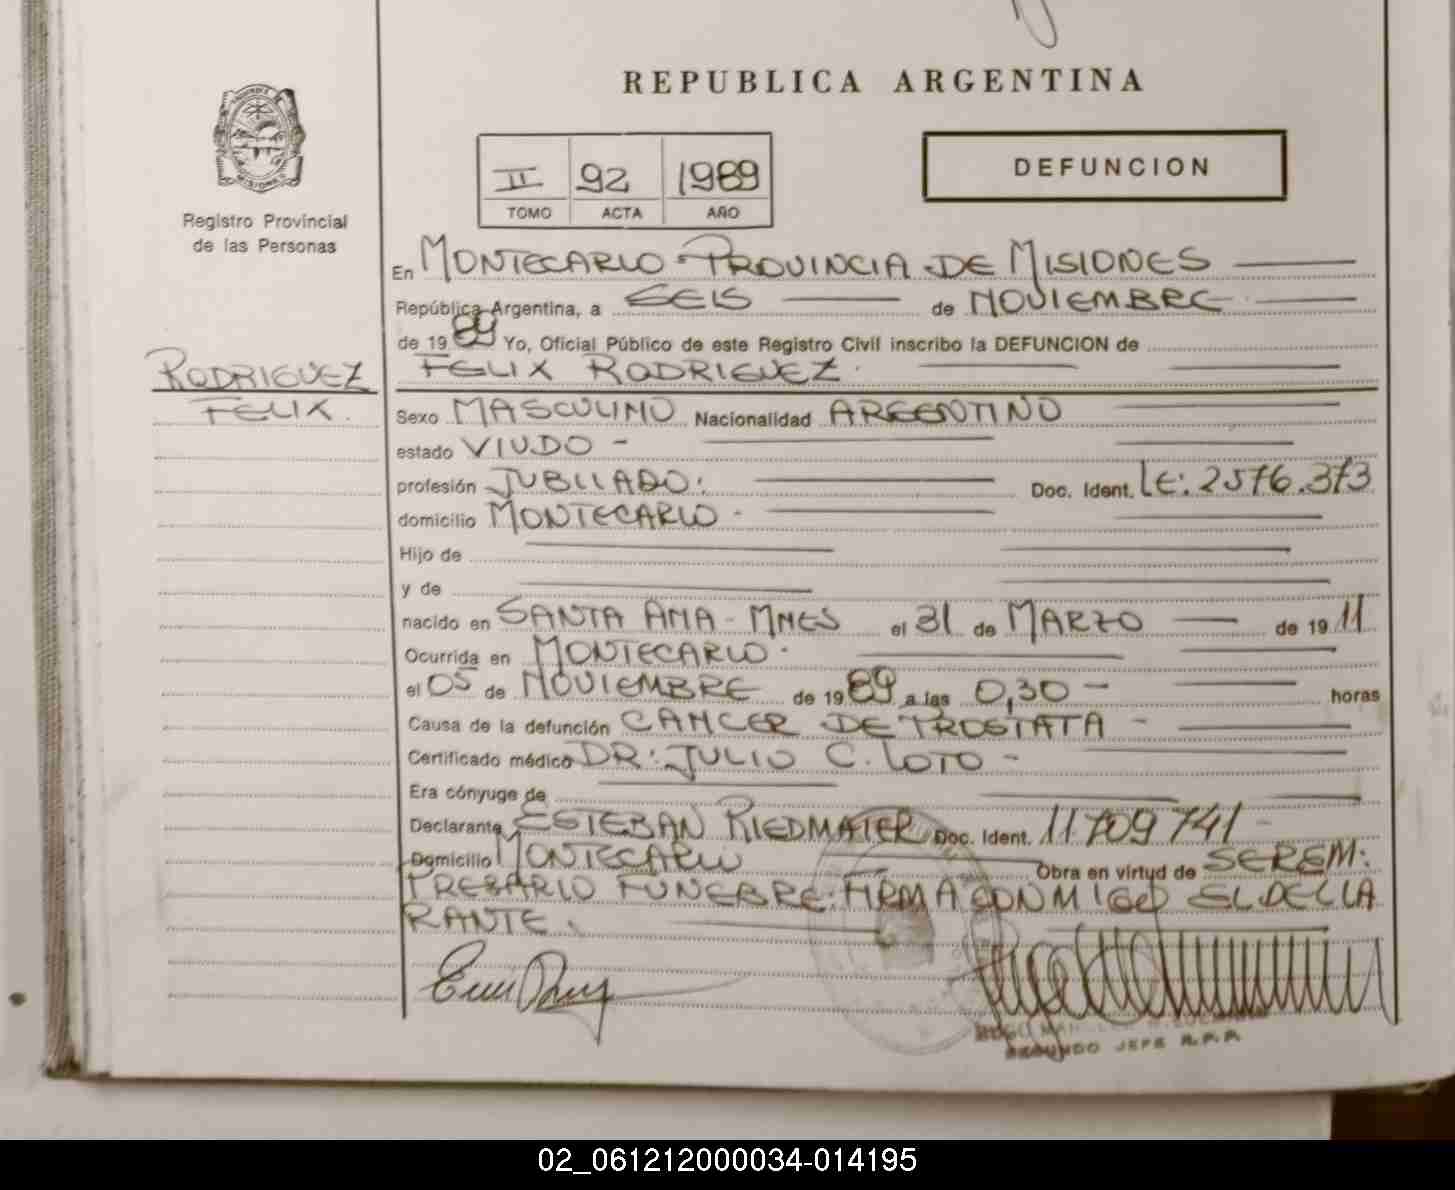 REPUBLICA ARGENTINA
MISIONES
Registro Provincial
de las Personas
II 92 1989
TOMO ACTA AÑO
DEFUNCION
En MONTECARLO - PROVINCIA DE MISIONES
República Argentina, a SEIS de NOVIEMBRE
de 1989 Yo, Oficial Público de este Registro Civil inscribo la DEFUNCION de
FELIX RODRIGUEZ
RODRIGUEZ
FELIX.
Sexo MASCULINO Nacionalidad ARGENTINO
estado VIUDO -
profesión JUBILADO. Doc. Ident. LE: 2576.373
domicilio MONTECARLO -
Hijo de
y de
nacido en SANTA ANA - MNES el 31 de MARZO de 1911
Ocurrida en MONTECARLO.
el 05 de NOVIEMBRE de 1989 a las 0,30 - horas
Causa de la defunción CANCER DE PROSTATA -
Certificado médico DR: JULIO C. LOTO -
Era cónyuge de
Declarante ESTEBAN RIEDMAIER Doc. Ident. 11709741 -
Domicilio MONTECARLO Obra en virtud de SER EM:
PRESARIO FUNEBRE. FIRMA CONMIGO EL DECLA
RANTE.
SEGUNDO JEFE R.P.P.
02_061212000034-014195